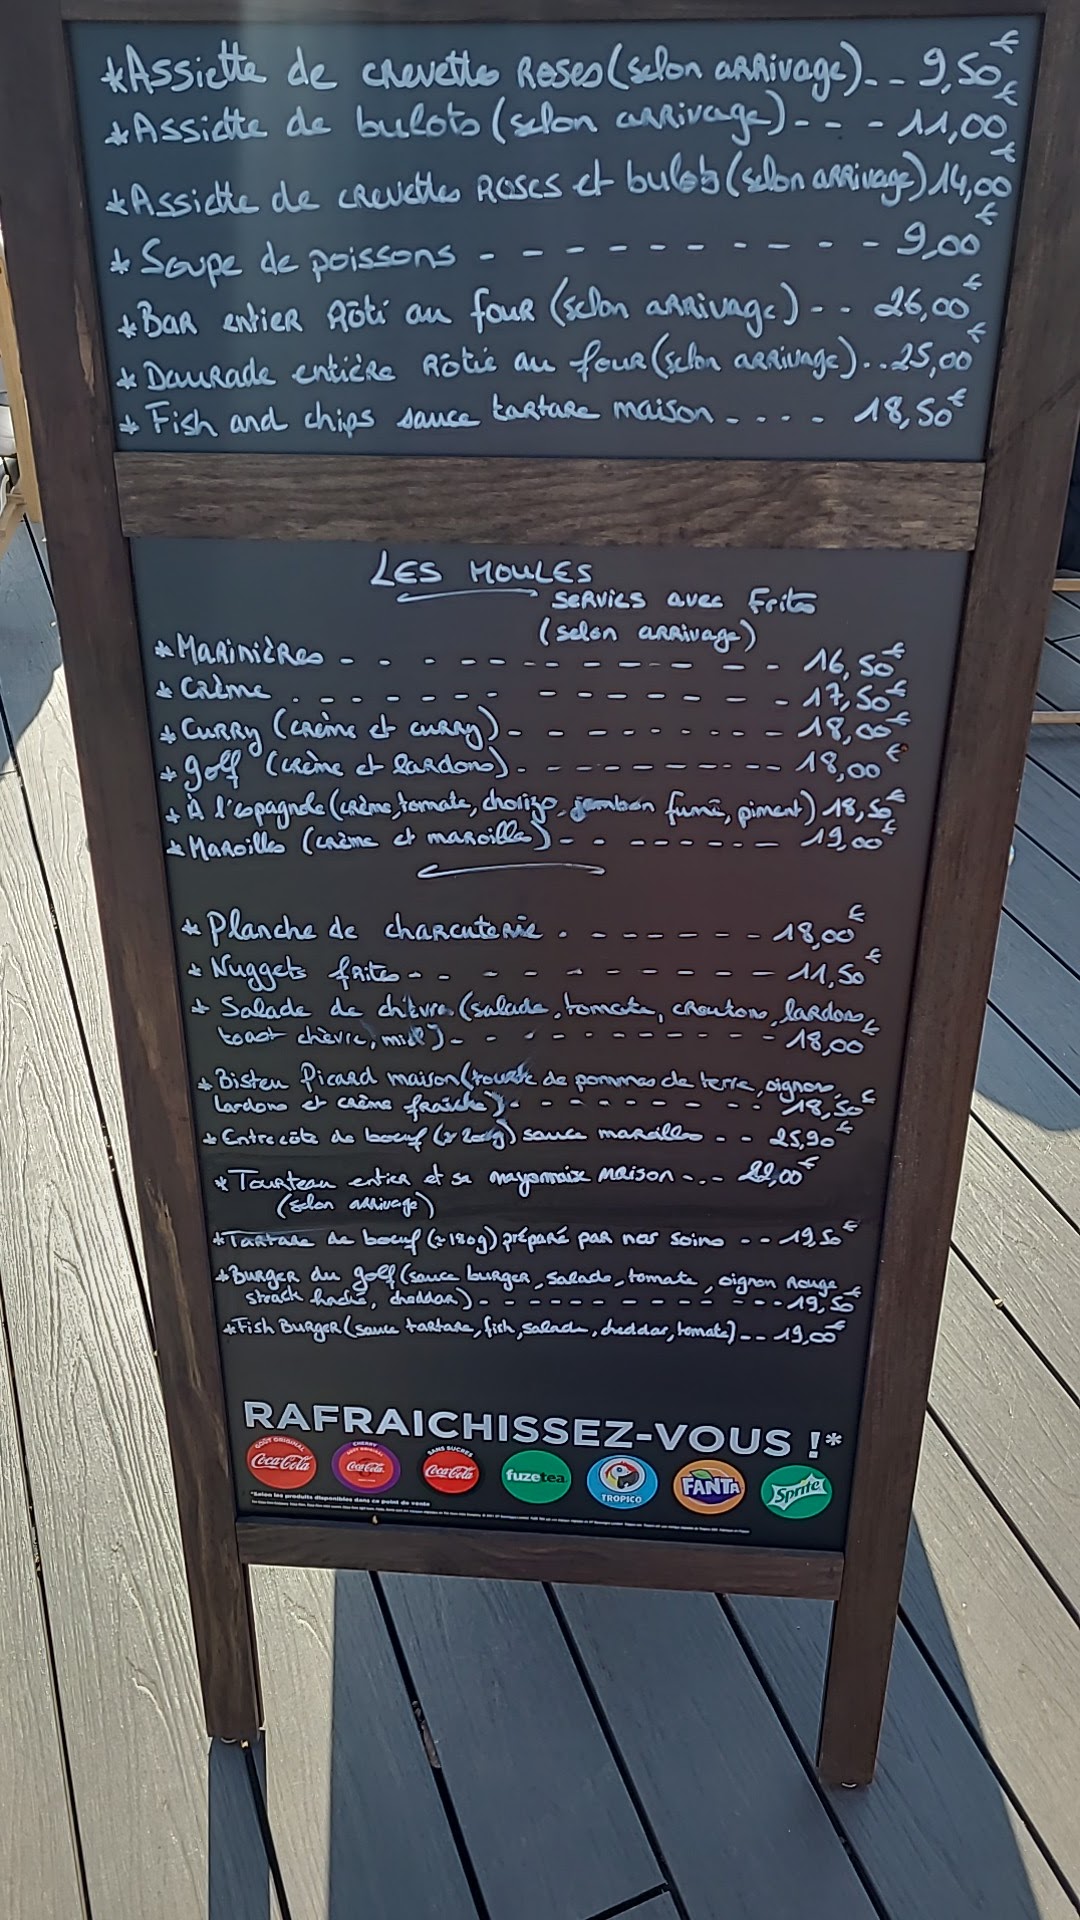 *Assiette de crevettes Roses (selon arrivage)-- 9,50€
*Assiette de bulots (selon arrivage)--- 11,00€
*Assiette de crevettes Roses et bulots (selon arrivage) 14,00€
* Soupe de poissons ---------- 9,00€
*Bar entier Rôti au four (selon arrivage)-- 26,00€
* Daurade entière Rôtie au four (selon arrivage)..25,00€
* Fish and chips sauce tartare maison ---- 18,50€
LES MOULES
servies avec Frites
(selon arrivage)
*Marinières ------------ 16,50€
* Crème ------------ 17,50€
* Curry (crème et curry)--------- 18,00€
* golf (crème et lardons)--------- 18,00€
* À l'espagnole (crème, tomate, chorizo, jambon fumé, piment) 18,50€
* Maroilles (crème et maroilles)--------- 19,00€
* Planche de charcuterie -------- 18,00€
* Nuggets frites ---------- 11,50€
* Salade de chèvre (salade, tomate, croutons, lardons,
toast chèvre, miel)----------- 18,00€
* Bisteu Picard maison (tourte de pommes de terre, oignons,
lardons et crème fraîche)--------- 18,50€
* Entrecôte de boeuf (≈ 200g) sauce maroilles -- 25,90€
* Tourteau entier et sa mayonnaise maison --- 22,00€
(selon arrivage)
*Tartare de boeuf (≈180g) préparé par nos soins -- 19,50€
*Burger du golf (sauce burger, salade, tomate, oignon Rouge
steack haché, cheddar)------------ 19,50€
*Fish Burger (sauce tartare, fish, salade, cheddar, tomate)-- 19,00€
RAFRAICHISSEZ-VOUS !*
GOÛT ORIGINAL CHERRY GOÛT ORIGINAL SANS SUCRES
Coca-Cola Coca-Cola Coca-Cola fuzetea TROPICO FANTA Sprite
*Selon les produits disponibles dans ce point de vente